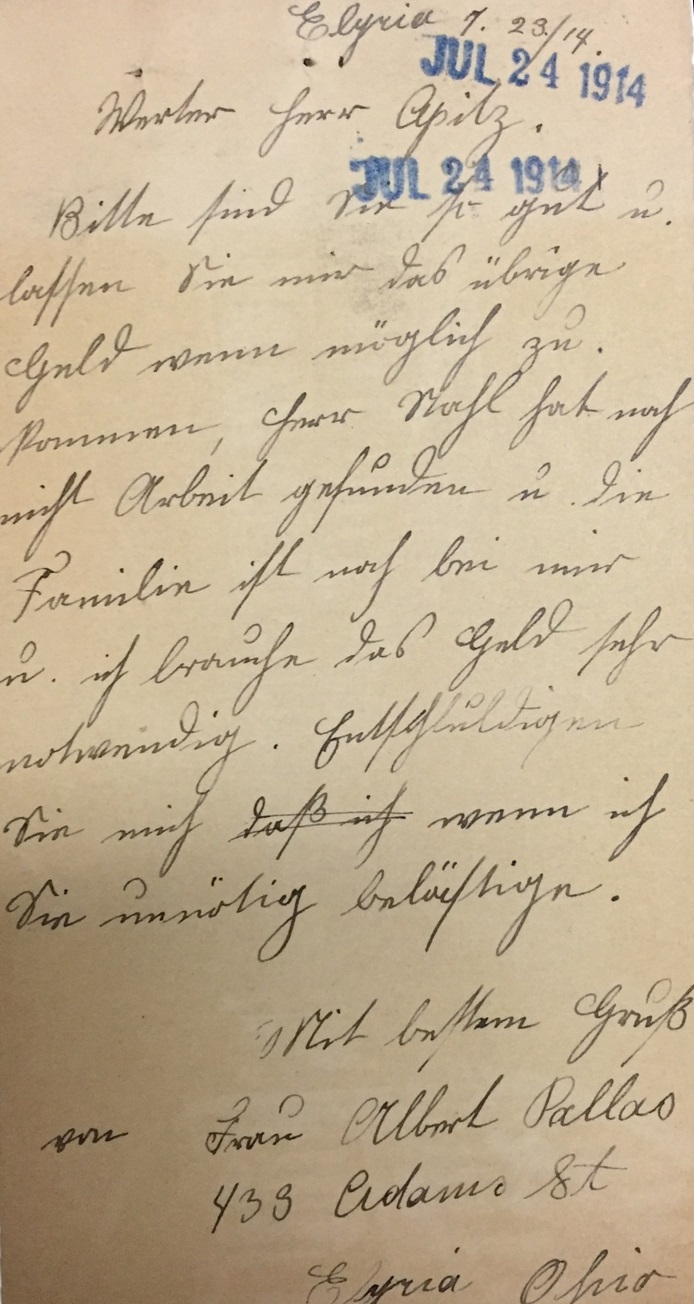 Elyria 7. 23./14.
JUL 24 1914
Werter Herr Apitz.
JUL 24 1914
Bitte sind Sie so gut u.
lassen Sie mir das übrige
Geld wenn möglich zu.
kommen, Herr Stahl hat noch
nicht Arbeit gefunden u. die
Familie ist noch bei mir
u. ich brauche das Geld sehr
notwendig. Entschuldigen
Sie mich daß ich wenn ich
Sie unnötig belästige.
Mit bestem Gruß
von Frau Albert Pallas
433 Adams St
Elyria Ohio